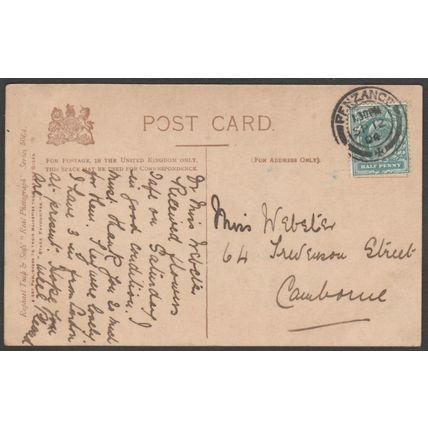 POST CARD.
FOR POSTAGE, IN THE UNITED KINGDOM ONLY,
THIS SPACE MAY BE USED FOR CORRESPONDENCE.
(FOR ADDRESS ONLY.)
Raphael Tuck & Sons' "Real Photograph" Series
Dr Miss Webster
Received flowers
safe on Saturday
in good condition. I
must thank you so much
for them. They were lovely
I have 3 in from London
at present. Hope you
are
Miss Webster
64 Trevenson Street
Camborne
PENZANCE
HALF PENNY